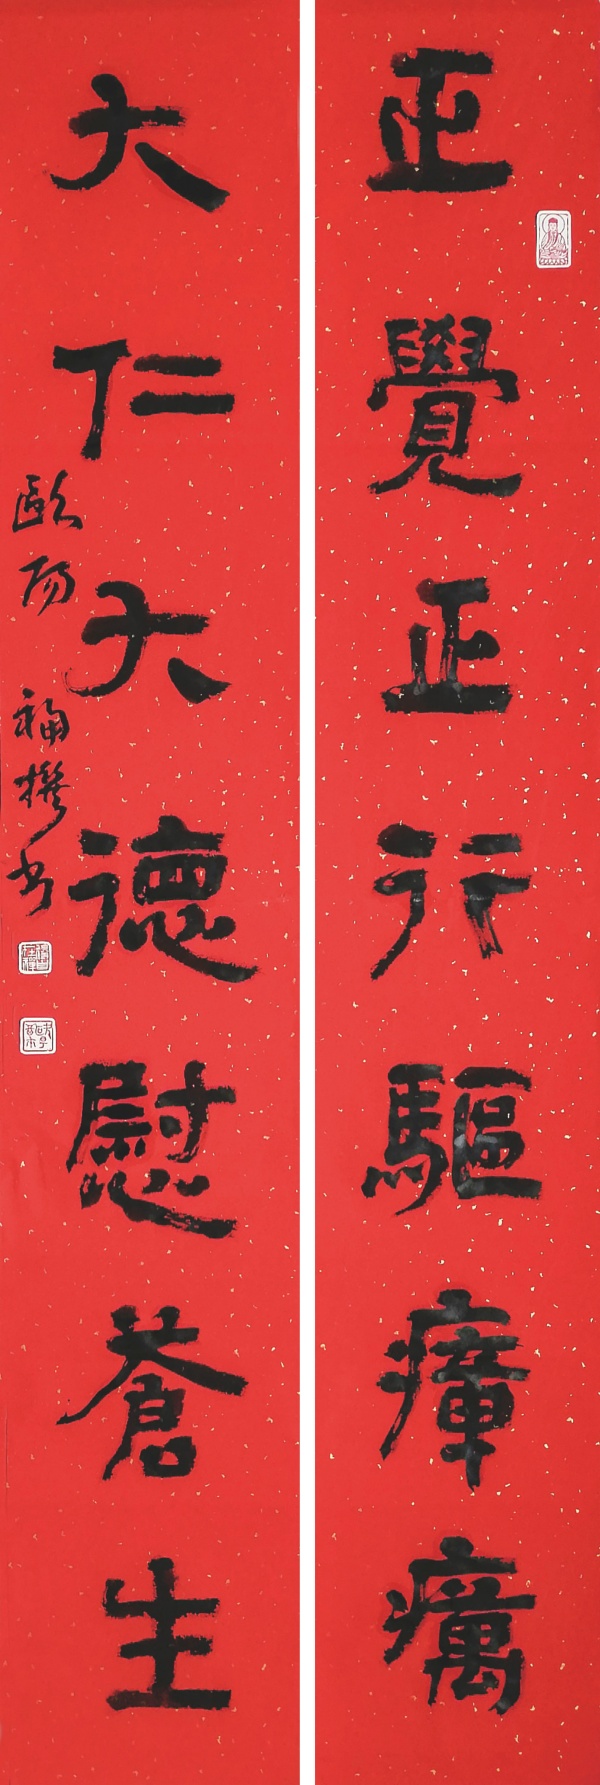 正覺正行驅瘴癘
大仁大德慰蒼生
歐陽福撰書